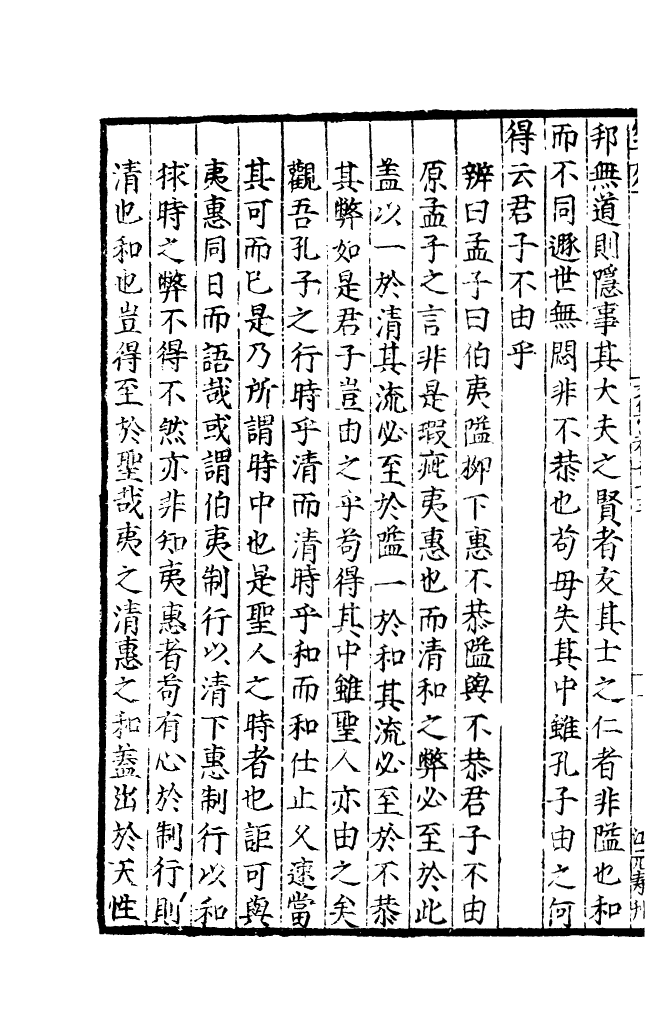 邦無道則隱事其大夫之賢者友其士之仁者非隘也和
而不同遯世無悶非不恭也苟毋失其中雖孔子由之何
得云君子不由乎
辨曰孟子曰伯夷隘柳下惠不恭隘與不恭君子不由
原孟子之言非是瑕疵夷惠也而清和之弊必至於此
盖以一於清其流必至於隘一於和其流必至於不恭
其弊如是君子豈由之乎苟得其中雖聖人亦由之矣
觀吾孔子之行時乎清而清時乎和而和仕止久速當
其可而已是乃所謂時中也是聖人之時者也詎可與
夷惠同日而語哉或謂伯夷制行以清下惠制行以和
捄時之弊不得不然亦非知夷惠者苟有心於制行則
清也和也豈得至於聖哉夷之清惠之和蓋出於天性